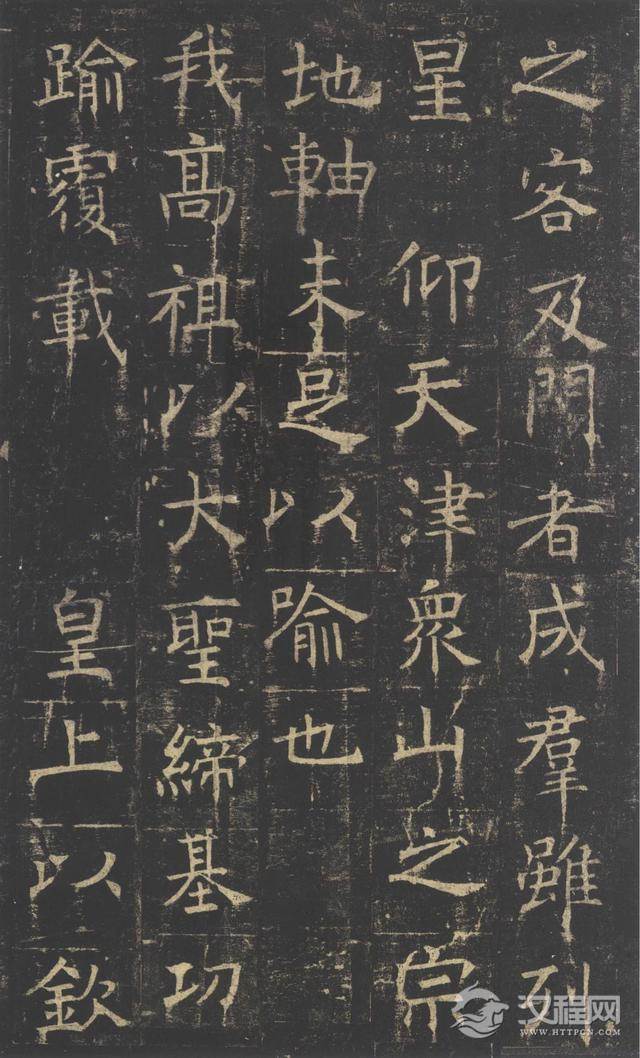 之客及門者成羣雖列
星 仰天津衆山之宗
地軸未足以喻也
我高祖以大聖締基功
踰覆載 皇上以欽
汉程网
WWW.HTTPCN.COM